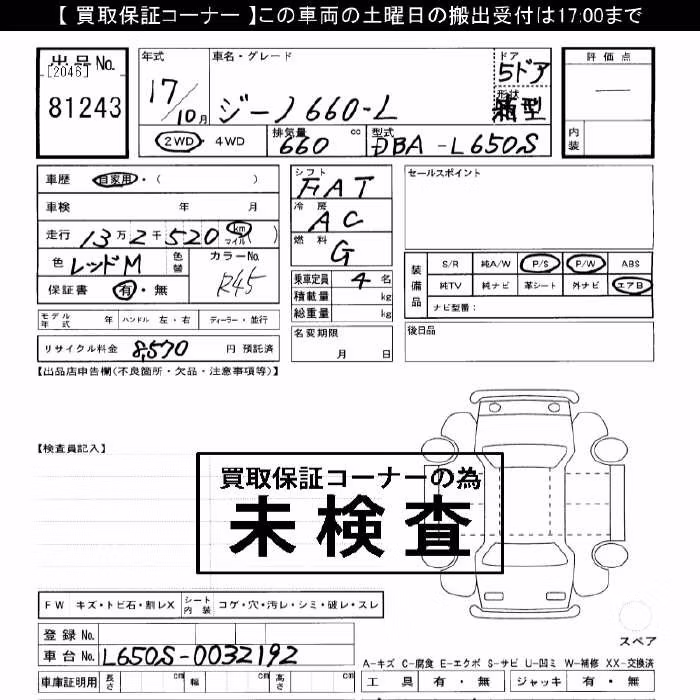 【 買取保証コーナー 】この車両の土曜日の搬出受付は17:00まで
出品No.
[2046]
81243
年式
17/10月
車名・グレード
ジーノ660-L
ドア
5ドア
形状
箱型
評価点
内装
2WD・4WD
排気量 660 cc
型式 DBA-L650S
車歴 自家用・( )
車検 年 月
走行 13万2千520 (km マイル)
色 レッドM
色替
カラーNo. R45
保証書 有・無
シフト FIAT
冷房 AC
燃料 G
乗車定員 4名
積載量 kg
総重量 kg
名変期限
月 日
セールスポイント
装備品
S/R 純A/W P/S P/W ABS
純TV 純ナビ 革シート 外ナビ エアB
ナビ型番:
後日品
モデル年式 年 ハンドル 左・右 ディーラー・並行
リサイクル料金 8,570 円 預託済
【出品店申告欄(不良箇所・欠品・注意事項等)】
【検査員記入】
買取保証コーナーの為
未検査
FW キズ・トビ石・割レX
シート内装 コゲ・穴・汚レ・シミ・破レ・スレ
登録No.
車台No. L650S-0032192
車庫証明用 長さ cm 幅 cm 高さ cm
スペア
A-キズ C-腐食 E-エクボ S-サビ U-凹ミ W-補修 XX-交換済
工具 有・無 ジャッキ 有・無